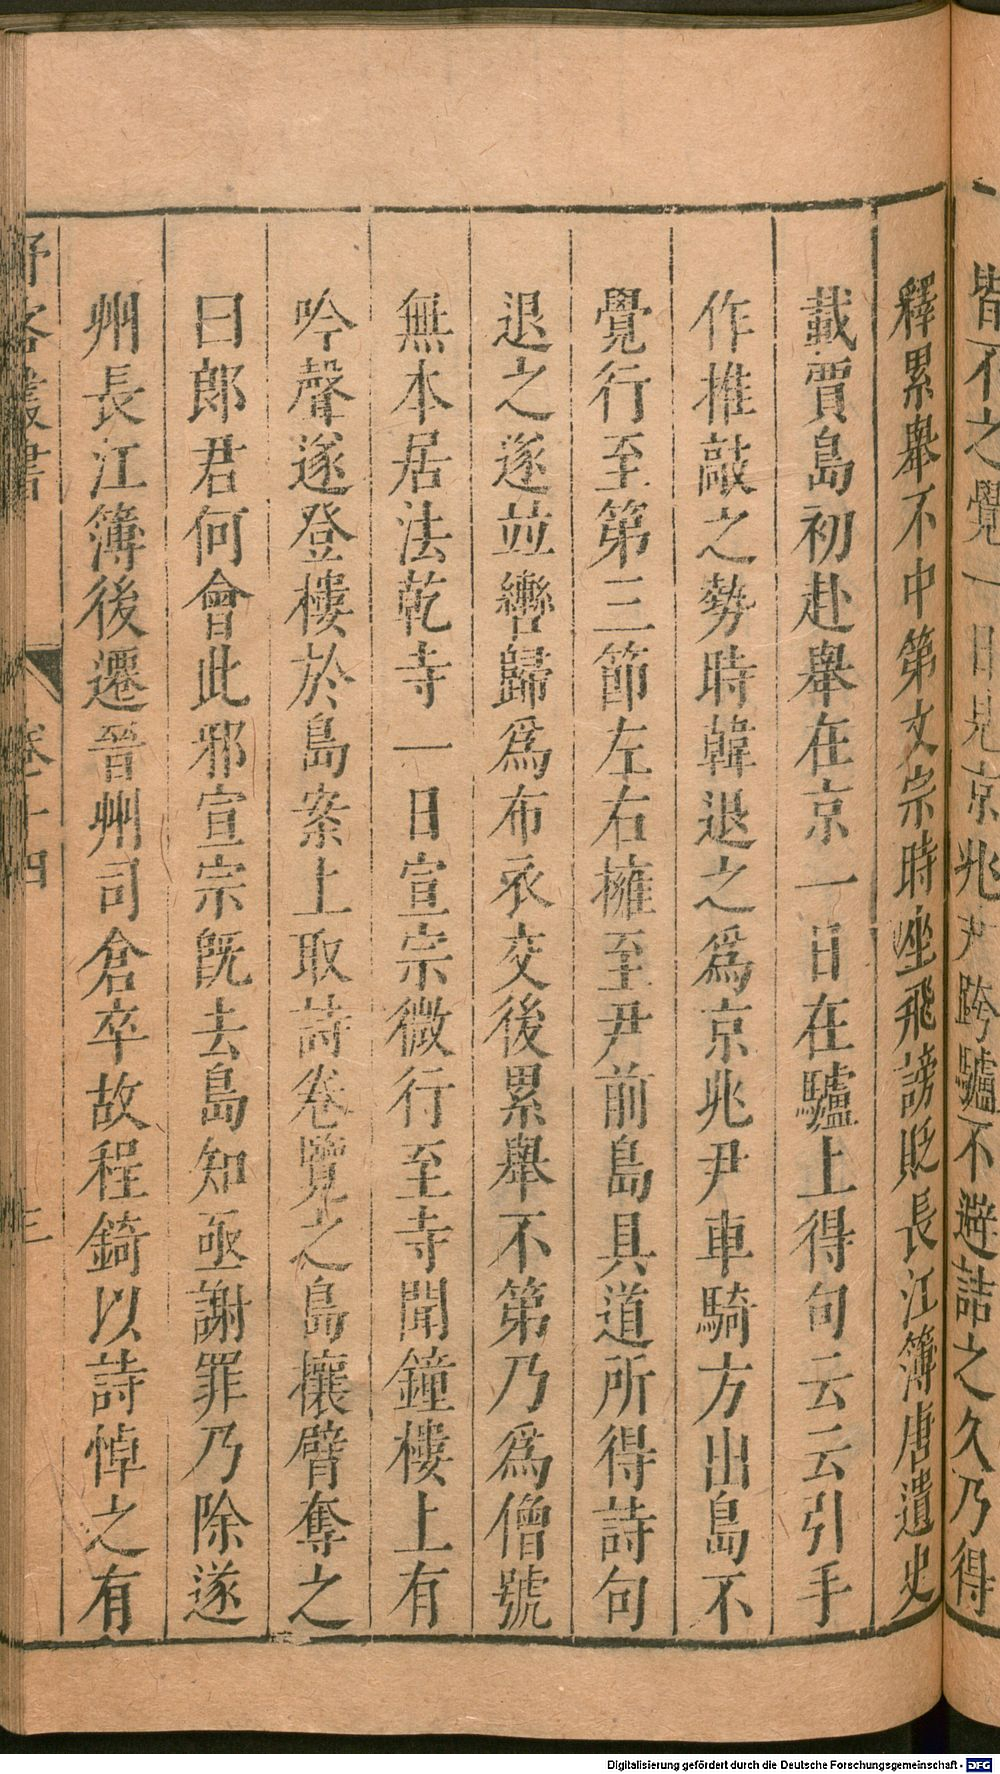 皆不之覺一日見京兆尹跨驢不避詰之久乃得
釋累舉不中第文宗時坐飛謗貶長江簿唐遺史
載賈島初赴舉在京一日在驢上得句云云引手
作推敲之勢時韓退之為京兆尹車騎方出島不
覺行至第三節左右擁至尹前島具道所得詩句
退之遂並轡歸為布衣交後累舉不第乃為僧號
無本居法乾寺一日宣宗微行至寺聞鐘樓上有
吟聲遂登樓於島案上取詩卷覽之島攘臂奪之
曰郎君何會此邪宣宗旣去島知亟謝罪乃除遂
州長江簿後遷晉州司倉卒故程錡以詩悼之有
野客叢書 卷十四 三
Digitalisierung gefördert durch die Deutsche Forschungsgemeinschaft - DFG